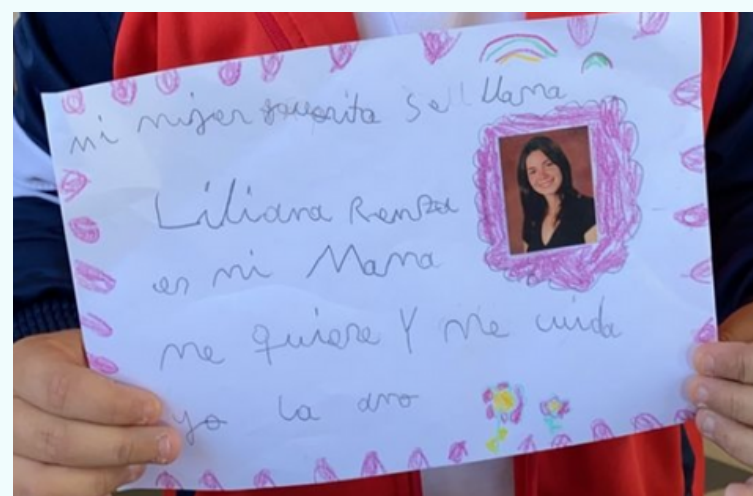 mi mujer favorita Se llama
Liliana Renza
es mi Mama
me quiere Y Me cuida
yo la amo